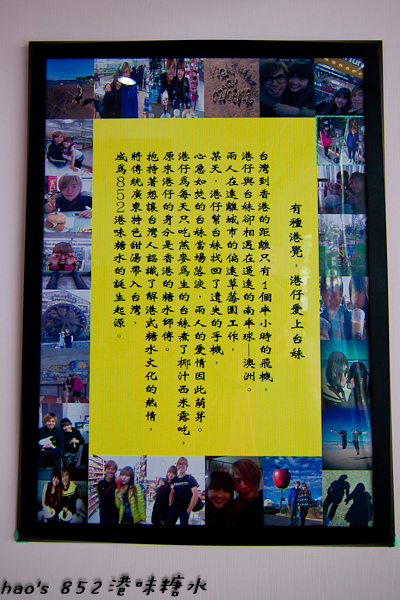 有種港覺．港仔愛上台妹
台灣到香港的距離只有1個半小時的飛機，
港仔與台妹卻相遇在遙遠的南半球—澳洲。
兩人在遠離城市的偏遠草莓園工作，
某天，港仔幫台妹找回了遺失的手機，
心急如焚的台妹當場落淚，兩人的愛情因此萌芽。
港仔為每天只吃燕麥為生的台妹煮了椰汁西米露吃，
原來港仔的身分是香港的糖水師傅。
抱持著想讓台灣人認識了解港式糖水文化的熱情，
將傳統廣東特色甜湯帶入台灣，
成為852港味糖水的誕生起源。
hao's 852港味糖水